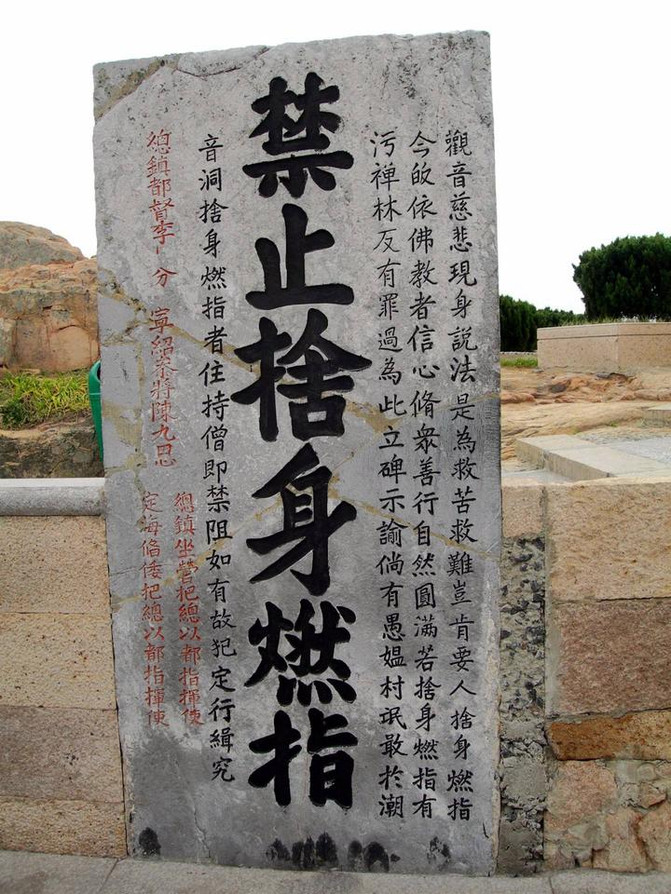 觀音慈悲現身説法是為救苦救難豈肯要人捨身燃指
今皈依佛教者信心脩眾善行自然圓滿若捨身燃指有
污禅林反有罪過為此立碑示諭倘有愚媪村氓敢於潮
禁止捨身燃指
音洞捨身燃指者住持僧即禁阻如有故犯定行緝究
總鎮都督李分
寧紹參將陳九思
總鎮坐營把總以都指揮使
定海偹倭把總以都指揮使